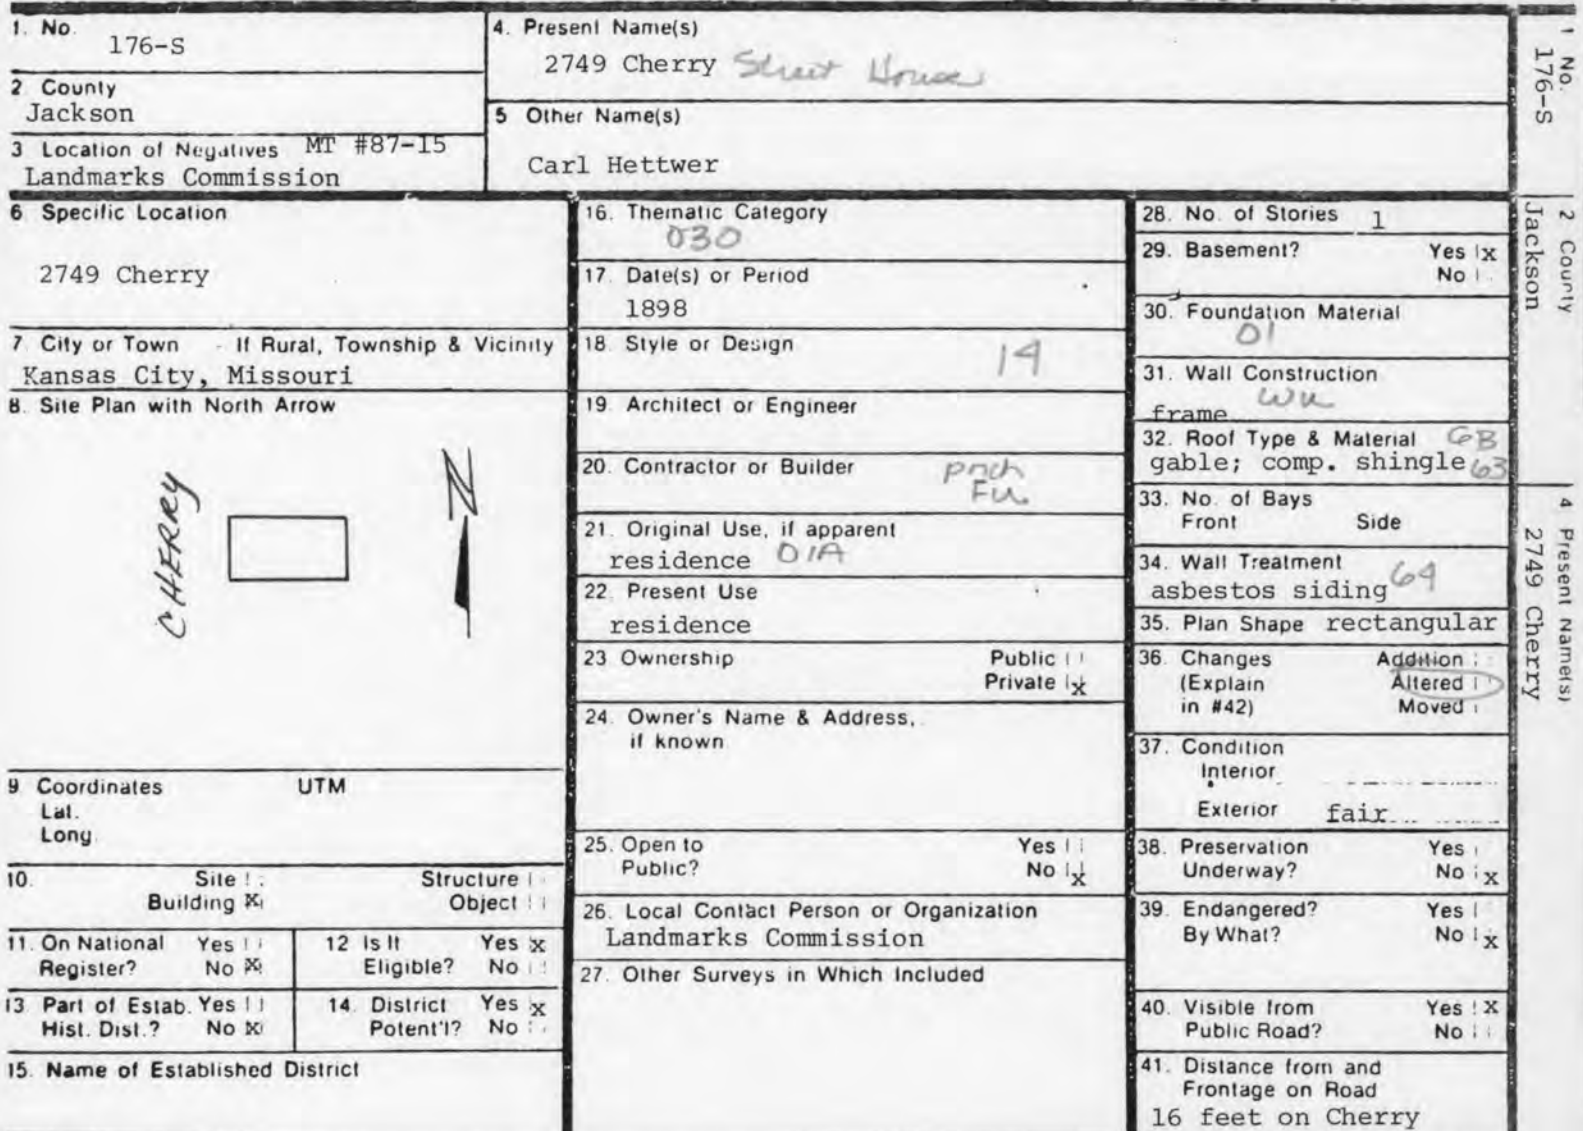 1. No.
176-S
2 County
Jackson
3 Location of Negatives MT #87-15
Landmarks Commission
4. Present Name(s)
2749 Cherry Street House
5 Other Name(s)
Carl Hettwer
6. Specific Location
2749 Cherry
7. City or Town If Rural, Township & Vicinity
Kansas City, Missouri
8. Site Plan with North Arrow
CHERRY
N
9 Coordinates UTM
Lat.
Long.
10. Site Structure
Building X Object
11. On National Yes
Register? No X
12 Is It Yes x
Eligible? No
13 Part of Estab. Yes
Hist. Dist.? No X
14. District Yes x
Potent'l? No
15. Name of Established District
16. Thematic Category
030
17. Date(s) or Period
1898
18. Style or Design
14
19. Architect or Engineer
20. Contractor or Builder
21. Original Use, if apparent
residence 01A
22. Present Use
residence
23 Ownership Public
Private x
24. Owner's Name & Address,
if known
25. Open to Yes
Public? No x
26. Local Contact Person or Organization
Landmarks Commission
27. Other Surveys in Which Included
28. No. of Stories 1
29. Basement? Yes x
No
30. Foundation Material
01
31. Wall Construction
frame
32. Roof Type & Material
gable; comp. shingle 63
33. No. of Bays
Front Side
34. Wall Treatment
asbestos siding 64
35. Plan Shape rectangular
36. Changes Addition
(Explain Altered
in #42) Moved
37. Condition
Interior
Exterior fair
38. Preservation Yes
Underway? No x
39. Endangered? Yes
By What? No x
40. Visible from Yes x
Public Road? No
41. Distance from and
Frontage on Road
16 feet on Cherry
1 No.
176-S
2 County
Jackson
4 Present Name(s)
2749 Cherry